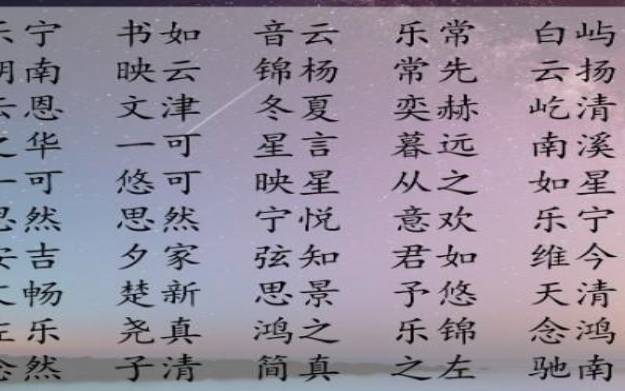 宁 书如 音云 乐常 白屿
南 映云 锦杨 常先 云扬
恩 文津 冬夏 奕赫 屹清
华 一可 星言 暮远 南溪
可 悠可 映星 从之 如星
然 思然 宁悦 意欢 乐宁
吉 夕家 弦知 君如 维今
畅 楚新 思景 予悠 天清
乐 尧真 鸿之 乐锦 念鸿
然 子清 简真 之左 驰南